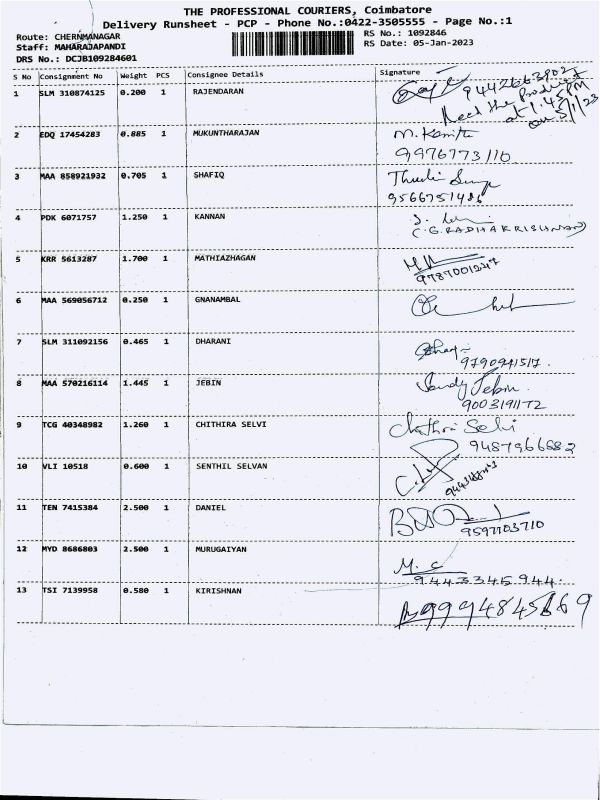 THE PROFESSIONAL COURIERS, Coimbatore
Delivery Runsheet - PCP - Phone No.:0422-3505555 - Page No.:1
Route: CHERNMANAGAR
Staff: MAHARAJAPANDI
DRS No.: DCJB109284601
RS No.: 1092846
RS Date: 05-Jan-2023
S No Consignment No Weight PCS Consignee Details Signature
1 SLM 310874125 0.200 1 RAJENDARAN 9442663902
Need the Product
at 1.45PM
on 5/1/23
2 EDQ 17454283 0.885 1 MUKUNTHARAJAN
9976773110
3 MAA 858921932 0.705 1 SHAFIQ
9566751486
4 PDK 6071757 1.250 1 KANNAN
(C.G.RADHAKRISHNAN)
5 KRR 5613287 1.700 1 MATHIAZHAGAN
9787001247
6 MAA 569056712 0.250 1 GNANAMBAL
7 SLM 311092156 0.465 1 DHARANI
8 MAA 570216114 1.445 1 JEBIN Sandy Jebin
9003191172
9 TCG 40348982 1.260 1 CHITHIRA SELVI Chithra Selvi
9487966682
10 VLI 10518 0.600 1 SENTHIL SELVAN
11 TEN 7415384 2.500 1 DANIEL
9597103710
12 MYD 8686803 2.500 1 MURUGAIYAN M. C
9443345944
13 TSI 7139958 0.580 1 KIRISHNAN 9994845869